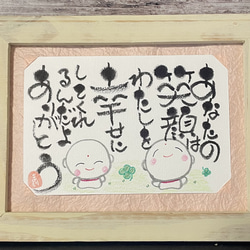 あなたの
笑顔は
わたしを
幸せに
してくれ
るんだよ
ありがとう